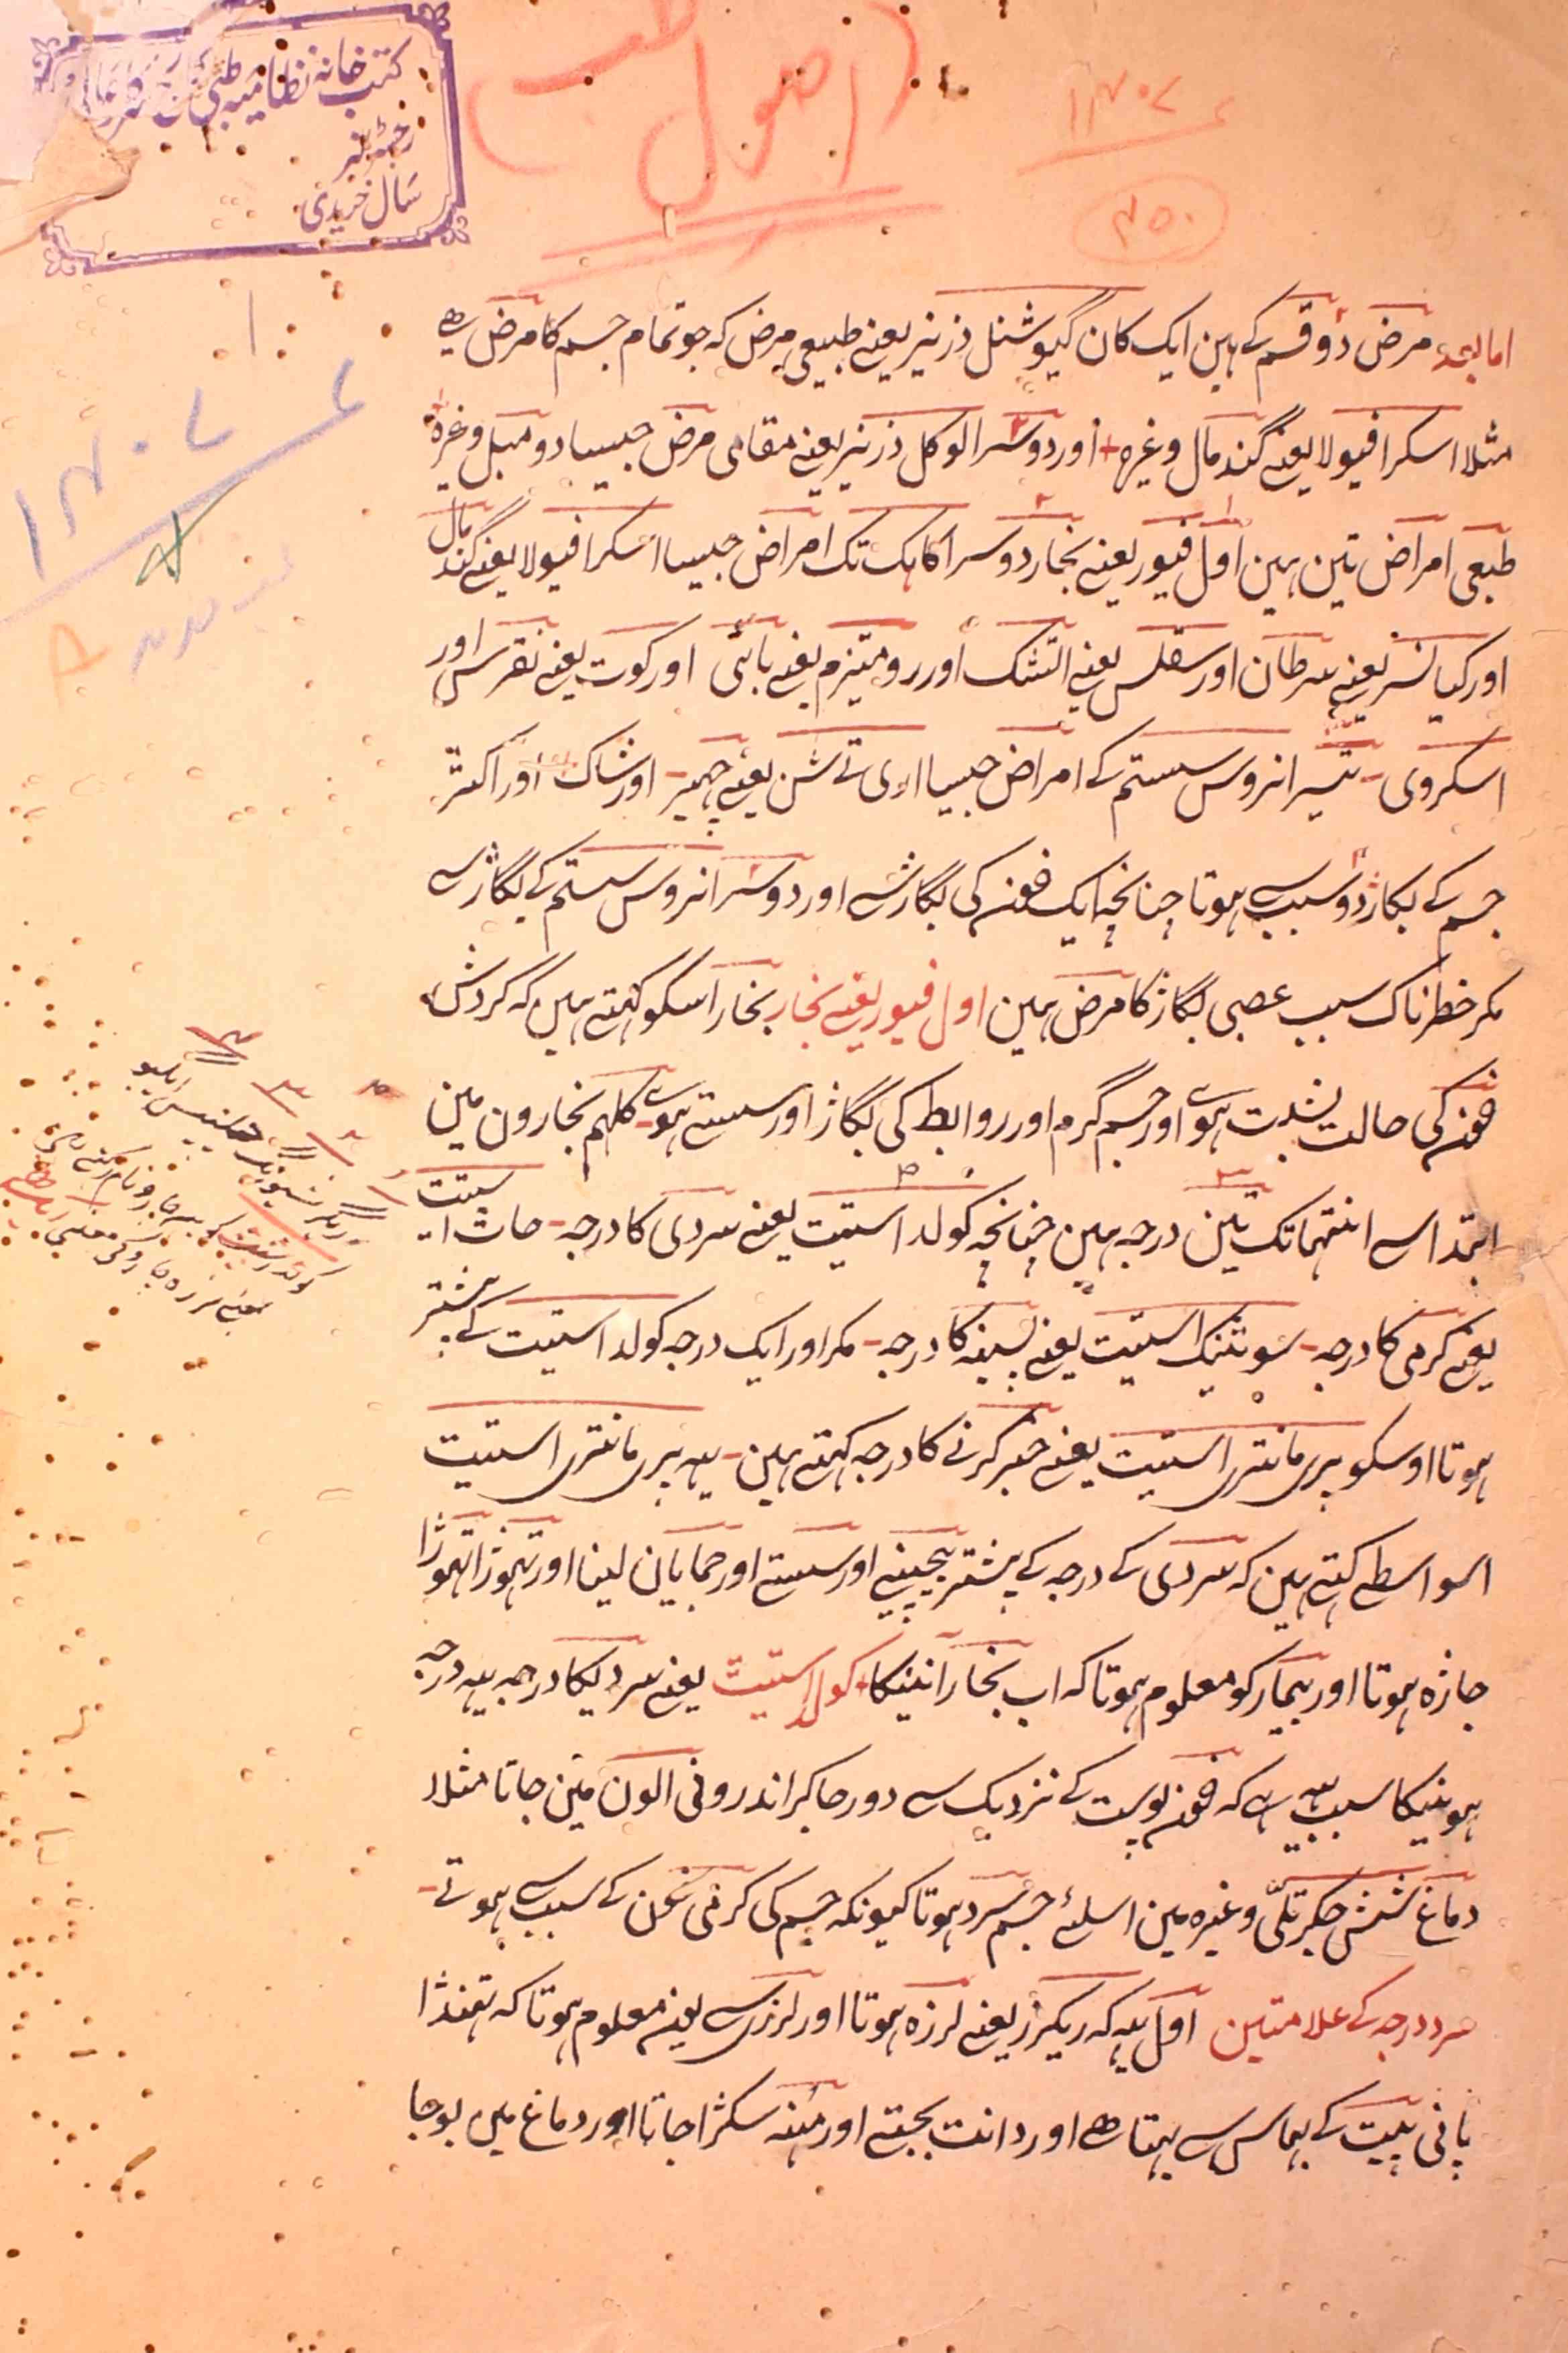 اصول طب
۱۴۰۷
۴۵۰
کتب خانہ نظامیہ طبی
رجسٹر نمبر
سال خریدی
۱۴۰۷
امابعد مرض دو قسم کے ہین ایک کان گیوشنل ذزیز یعنے طبیعی مرض کہ جو تمام جسم کا مرض ہے
مثلا اسکرافیولا یعنے گندمال وغیرہ اور دوسرا لوکل ذزیز یعنے مقامی مرض جیسا دومبل وغیرہ
طبعی امراض تین ہین اول فیور یعنے بخار دوسرا کاہک تک امراض جیسا اسکرافیولا یعنے گندمال
اور کیانسر یعنے سرطان اور سفلس یعنے اتشک اور رومتیزم یعنے بائی اور کوت یعنے نقرس اور
اسکروی تیسرا نروس سستم کے امراض جیسا اری تے شن یعنے چہیر اور شاک اور اکثر
جسم کے بگاڑ دو سبب سے ہوتا چنانچہ ایک خون کی بگاڑ سے اور دوسرا نروس سستم کے بگاڑ سے
مکر خطرناک سبب عصبی بگاڑ کا مرض ہین اول فیور یعنے بخار بخار اسکو کہتے ہین کہ کردش
خون کی حالت بشدت ہوے اور جسم گرم اور روابط کی بگاڑ اور سستے ہوے کلہم بخارون مین
ابتدا سے انتہا تک تین درجہ ہین چنانچہ کولد استیت یعنے سردی کا درجہ ہات استیت
یعنے کرمی کا درجہ سوتنیک استیت یعنے پسینہ کا درجہ مکر اور ایک درجہ کولد استیت کے پیشتر
ہوتا اوسکو پری مانتری استیت یعنے خبر کرنے کا درجہ کہتے ہین یہہ پری مانتری استیت
اسواسطے کہتے ہین کہ سردی کے درجہ کے پیشتر بیچینے اور سستے اور جمایان لینا اور تہوڑا تہوڑا
جاڑہ ہوتا اور بیمار کو معلوم ہوتا کہ اب بخار آنیکا کولد استیت یعنے سردیکا درجہ یہہ درجہ
ہونیکا سبب یہہ ہے کہ خون پوست کے نزدیک سے دور جاکر اندرونی الون مین جاتا مثلا
دماغ شش جکر تلی وغیرہ مین اسلئے جسم سرد ہوتا کیونکہ جسم کی کرمی خون کے سبب سے ہوتے
سرد درجہ کے علامتین اول یہہ کہ ریکرز یعنے لرزہ ہوتا اور لرزی سے یون معلوم ہوتا کہ تہنڈا
پانی پیت کے بہاس سے بہتا ہے اور دانت بجتے اور منہ سکڑا جاتا اور دماغ مین بوجا